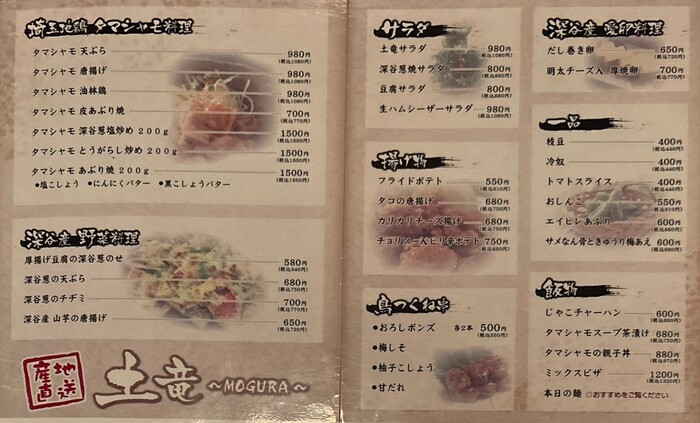 埼玉地鶏 タマシャモ料理
タマシャモ 天ぷら 980円
(税込1080円)
タマシャモ 唐揚げ 980円
(税込1080円)
タマシャモ 油林鶏 980円
(税込1080円)
タマシャモ 皮あぶり焼 700円
(税込770円)
タマシャモ 深谷葱塩炒め 200g 1500円
(税込1650円)
タマシャモ とうがらし炒め 200g 1500円
(税込1650円)
タマシャモ あぶり焼 200g 1500円
(税込1650円)
●塩こしょう ●にんにくバター ●黒こしょうバター
深谷産 野菜料理
厚揚げ豆腐の深谷葱のせ 580円
(税込640円)
深谷葱の天ぷら 680円
(税込750円)
深谷葱のチヂミ 700円
(税込770円)
深谷産 山芋の唐揚げ 650円
(税込720円)
産地直送
土竜 ～MOGURA～
サラダ
土竜サラダ 980円
(税込1080円)
深谷葱焼サラダ 800円
(税込880円)
豆腐サラダ 800円
(税込880円)
生ハムシーザーサラダ 980円
(税込1080円)
揚げ物
フライドポテト 550円
(税込610円)
タコの唐揚げ 680円
(税込750円)
カリカリチーズ揚げ 680円
(税込750円)
チョリソー入ピリ辛ポテト 750円
(税込830円)
鳥つくね串
●おろしポンズ 各2本 500円
(税込550円)
●梅しそ
●柚子こしょう
●甘だれ
深谷産 愛卵料理
だし巻き卵 650円
(税込720円)
明太チーズ入 厚焼卵 700円
(税込770円)
一品
枝豆 400円
(税込440円)
冷奴 400円
(税込440円)
トマトスライス 400円
(税込440円)
おしんこ 550円
(税込610円)
エイヒレあぶり 600円
(税込660円)
サメなん骨ときゅうり梅あえ 600円
(税込660円)
飯物
じゃこチャーハン 600円
(税込660円)
タマシャモスープ茶漬け 680円
(税込750円)
タマシャモの親子丼 880円
(税込970円)
ミックスピザ 1200円
(税込1320円)
本日の麺 ◎おすすめをご覧ください